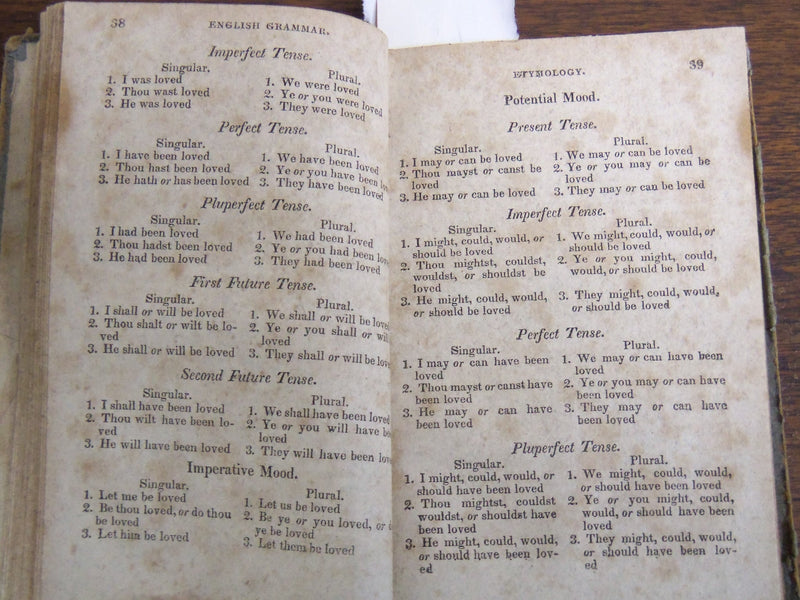 38
ENGLISH GRAMMAR.
Imperfect Tense.
Singular.
1. I was loved
2. Thou wast loved
3. He was loved
Plural.
1. We were loved
2. Ye or you were loved
3. They were loved
Perfect Tense.
Singular.
1. I have been loved
2. Thou hast been loved
3. He hath or has been loved
Plural.
1. We have been loved
2. Ye or you have been
3. They have been loved
Pluperfect Tense.
Singular.
1. I had been loved
2. Thou hadst been loved
3. He had been loved
Plural.
1. We had been loved
2. Ye or you had been
3. They had been loved
First Future Tense.
Singular.
1. I shall or will be loved
2. Thou shalt or wilt be lo-
ved
3. He shall or will be loved
Plural.
1. We shall or will be loved
2. Ye or you shall or
loved
3. They shall or will be
Second Future Tense.
Singular.
1. I shall have been loved
2. Thou wilt have been lo-
ved
3. He will have been loved
Plural.
1. We shall have been loved
2. Ye or you will have
loved
3. They will have been
Imperative Mood.
Singular.
1. Let me be loved
2. Be thou loved, or do thou
be loved
3. Let him be loved
Plural.
1. Let us be loved
2. Be ye or you loved, or
ye be loved
3. Let them be loved
ETYMOLOGY.
39
Potential Mood.
Present Tense.
Singular.
1. I may or can be loved
2. Thou mayst or canst be
loved
3. He may or can be loved
Plural.
1. We may or can be loved
2. Ye or you may or can be
loved
3. They may or can be loved
Imperfect Tense.
Singular.
1. I might, could, would, or
should be loved
2. Thou mightst, couldst,
wouldst, or shouldst be
loved
3. He might, could, would,
or should be loved
Plural.
1. We might, could, would, or
should be loved
2. Ye or you might, could,
would, or should be loved
3. They might, could, would,
or should be loved
Perfect Tense.
Singular.
1. I may or can have been
loved
2. Thou mayst or canst have
been loved
3. He may or can have
been loved
Plural.
1. We may or can have been
loved
2. Ye or you may or can have
been loved
3. They may or can have
been loved
Pluperfect Tense.
Singular.
1. I might, could, would, or
should have been loved
2. Thou mightst, couldst
wouldst, or shouldst have
been loved
3. He might, could, would,
or should have been lov-
ed
Plural.
1. We might, could, would,
or should have been loved
2. Ye or you might, could,
would, or should have been
loved
3. They might, could, would,
or should have been lov-
ed